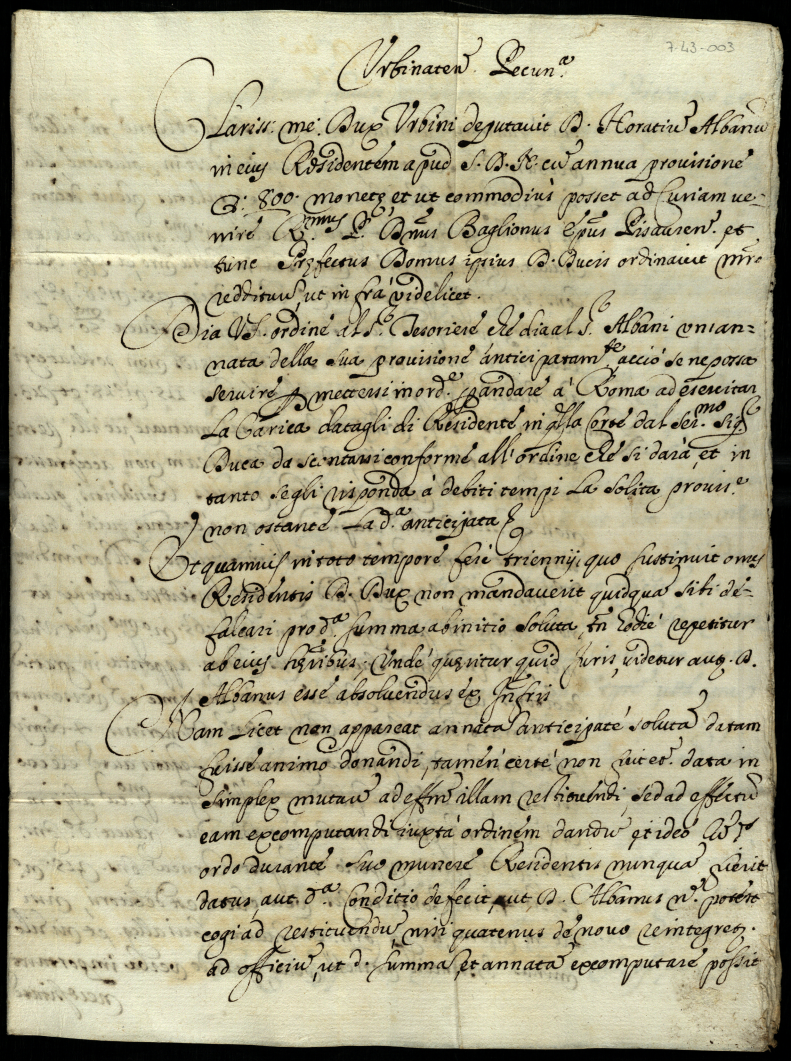 7-43-003
Urbinaten. Pecun.ª
Clariss: me: Dux Urbini deputauit D. Horatiũ Albanũ
in eius Residentem apud S. D. N. cũ annua prouisione
800. monetę et ut commodius posset ad Curiam ue-
nire R.mus P. Dñus Baglionus Epũs Pisauren. et
tunc Pręfectus Domus ipsius D. Ducis ordinauit
redditum, ut infrà videlicet.
Dia VS. ordine al S.r Tesoriere che dia al S.r Albani un an=
nata della sua prouisione anticipatam.te, acciò se ne possa
seruire p mettersi in ord.e p andare à Roma ad esercitar
La Carica datagli di Residente in qlla Corte dal Ser.mo Sig.r
Duca da scontarsi conforme all'ordine che si darà, et in
tanto se gli risponda à debiti tempi La solita prouis.e
non ostante La d.ª anticipata
Et quamuis in toto tempore ferè triennij, quo sustinuit
Residentis D. Dux non mandauerit quidquã sibi de-
falcari pro d.ª summa ab initio soluta, tñ hodie repetitur
ab eius hęredibus, Unde quęritur quid Juris, uidetur aut. D.
Albanus esse absoluendus ex Infrĩs
Nam Licet non appareat annatã anticipatè solutã datam
fuisse animo donandi, tamen certè non fuit data in
simplex mutuũ ad effũ illam restituendi, sed ad effectũ
eam excomputandi iuxta ordinem dandũ, et ideò
ordo durante suo munere Residentis nunquã fuerit
datus, aut. d.ª Conditio defecit, aut D. Albanus n. potest
cogi ad restituendũ nisi quatenus de nouo reintegretʳ.
ad officiũ, ut d. summã, et annatã excomputare possit